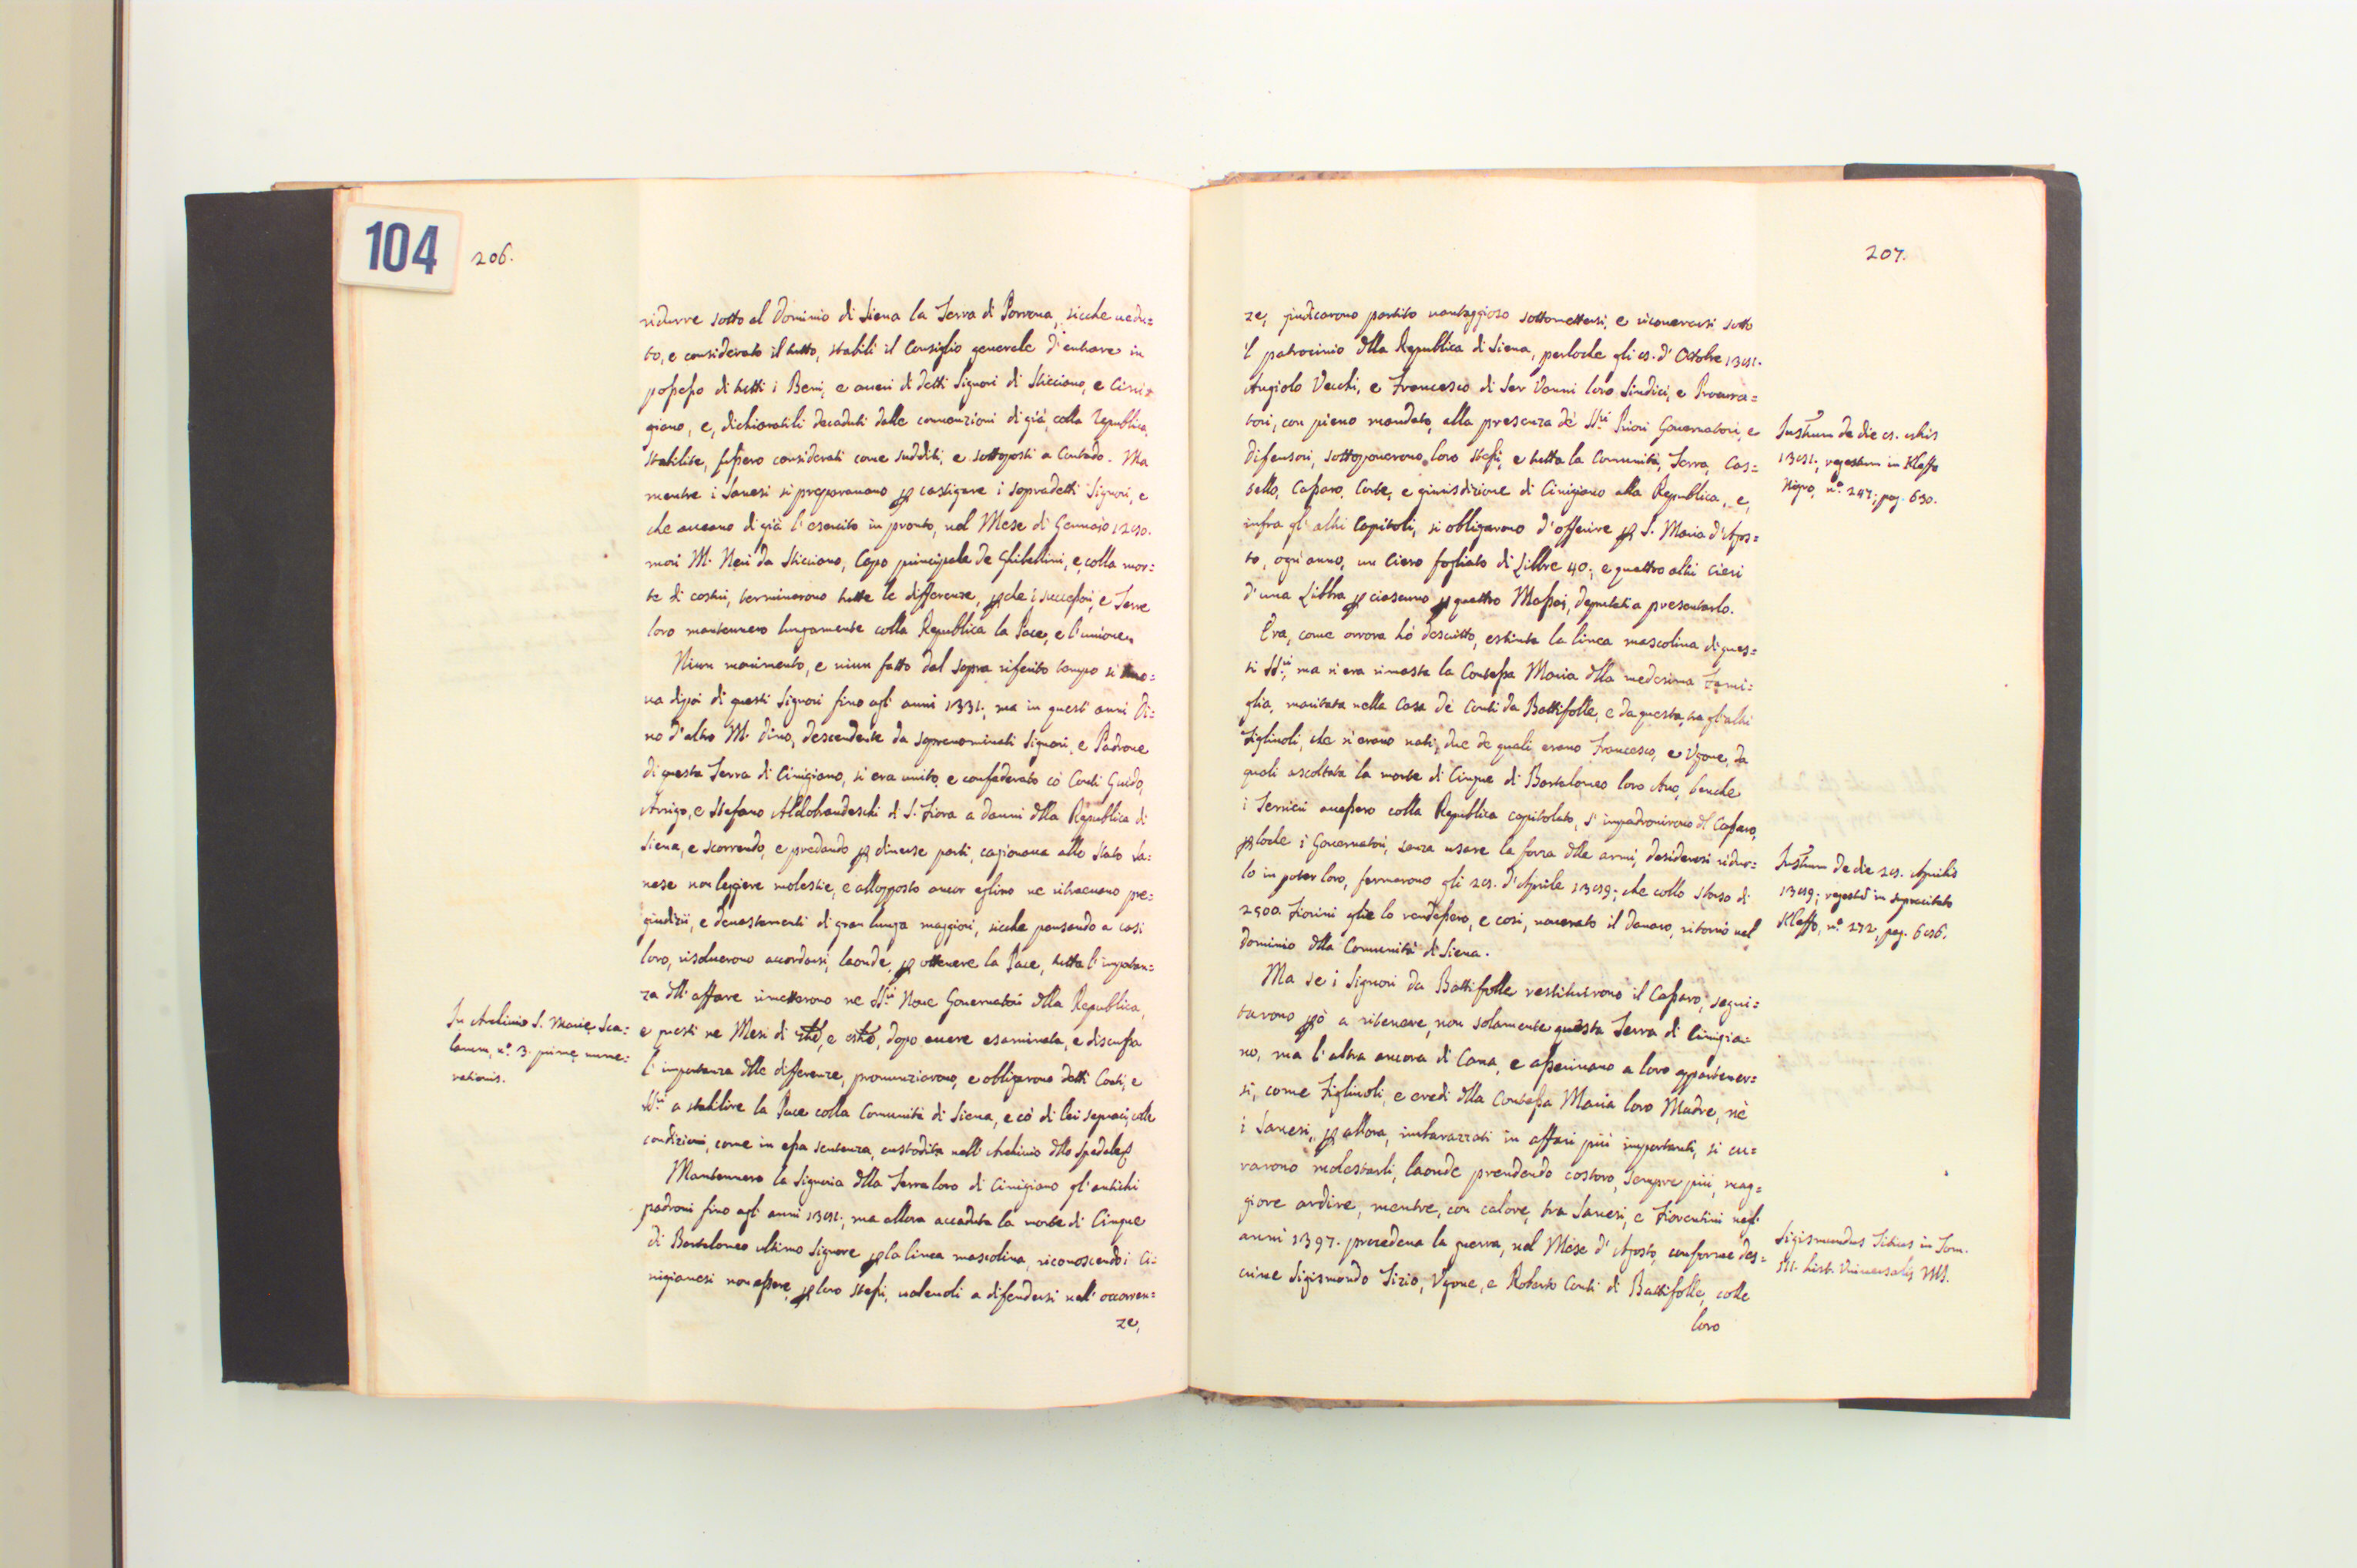 104
206.
ridurre sotto al Dominio di Siena la Terra di Porrona, sicche uedu=
to, e considerato il tutto, stabilì il Consiglio generale d'entrare in
possesso di tutti i Beni, e aueri di detti Signori di Sticciano, e Cini=
giano, e, dichiaratili decaduti dalle conuenzioni di già, colla Republica,
stabilite, fussero considerati come sudditi, e sottoposti a Contado. Ma
mentre i Sanesi si preparauano p castigare i sopradetti Signori, e
che aueano di già l'esercito in pronto, nel Mese di Gennaio 1290.
morì M. Neri da Sticciano, Capo principale de Ghibellini, e, colla mor=
te di costui, terminarono tutte le differenze, pche i successori, e Terre
loro mantennero lungamente colla Republica la Pace, e l'unione.
Niun mouimento, e niun fatto dal sopra riferito tempo si tro=
ua dipoi di questi Signori fino agl'anni 1331., ma in quest'anni Di=
no d'altro M. Dino, descendente da soprenominati Signori, e Padrone
di questa Terra di Cinigiano, si era unito, e confederato co' Conti Guido,
Arrigo, e Stefano Aldobrandeschi di S. Fiora a danni dlla Republica di
Siena, e scorrendo, e predando p diuerse parti, cagionaua allo Stato Sa=
nese non leggiere molestie, e all'opposto ancor eglino ne ritraeuano pre=
giudizii, e deuastamenti di gran lunga maggiori, sicche pensando a casi
loro, risoluerono accordarsi, laonde, p ottenere la Pace, tutta l'importan=
za dll'affare rimetterono ne SS.ri Noue Gouernatori dlla Republica,
e questi ne Mesi di e dopo auere esaminata, e discussa
l'importanza dlle differenze, pronunziarono, e obligarono detti Conti, e
SS.ri a stabilire la Pace colla Comunità di Siena, e co' di lei seguaci, colle
condizioni, come in essa sentenza, custodita nell'Archiuio dllo Spedale
Mantennero la Signoria dlla Terra loro di Cinigiano gl'antichi
padroni fino agl'anni 1391., ma allora accaduta la morte di Cinque
di Bartolomeo ultimo Signore p la linea mascolina, riconoscendo i Ci=
nigianesi non essere, p loro stessi, ualeuoli a difendersi nell'occorren=
ze,
In Archiuio S. Marię Sca=
larum, n.o 3. primę nume=
rationis.
207.
ze, giudicarono partito uantaggioso sottomettersi, e ricouerarsi sotto
'l patrocinio dlla Republica di Siena, perloche gli 9. d'Ottobre 1391.
Angiolo Vecchi, e Francesco di Ser Vanni loro Sindici, e Procura=
tori, con pieno mandato, alla presenza de' SS.ri Priori Gouernatori, e
difensori, sottoponerono loro stessi, e tutta la Comunità, Terra, Cas=
sello, Cassaro, Corte, e giurisdizione di Cinigiano alla Republica, e,
infra gl'altri Capitoli, si obligarono d'offerire p S. Maria d'Agos=
to, ogn'anno, un Ciero fogliato di Libbre 40., e quattro altri Cieri
d'una Libbra p ciascuno p quattro Massai, deputati a presentarlo.
Era, come orrora hò descritto, estinta la linea mascolina di ques=
ti SS.ri, ma n'era rimasta la Contessa Maria dlla medesima Fami=
glia, maritata nella Casa de' Conti da Battifolle, e da questa, tra gl'altri
Figliuoli, che n'erano nati, due de quali erano Francesco, e Vgone, da
quali ascoltata la morte di Cinque di Bartolomeo loro Auo, benche
i Terrieri auessero colla Republica capitolato, s'impadronirono dl Cassaro,
ploche i Gouernatori, senza usare la forza dlle armi, desiderosi ridur=
lo in poter loro, fermarono gli 29. d'Aprile 1399; che collo sborso di
2500. Fiorini glie lo rendessero, e così, nouerato il danaro, ritornò nel
dominio dlla Comunità di Siena.
Ma se i Signori da Battifolle restituirono il Cassaro, segui=
tarono pò a ritenere, non solamente questa Terra di Cinigia=
no, ma l'altra ancora di Cana, e asseriuano a loro appartener=
si, come Figliuoli, e eredi dlla Contessa Maria loro Madre, nè
i Sanesi, p allora, imbarazzati in affari più importanti, si cu=
rarono molestarli, laonde prendendo costoro, sempre più, mag=
giore ardire, mentre, con calore, tra Sanesi, e Fiorentini negl'
anni 1397. procedeua la guerra, nel Mese d'Agosto, conforme des=
criue Sigismondo Tizio, Vgone, e Roberto Conti di Battifolle, colle
loro
Instrum de die 9. 8bris
1391., regestum in Kleffo
Nigro, n.o 247., pag. 630.
Instrum de die 29. Aprilis
1399; regestũ in supracitato
Kleffo, n.o 272., pag. 696.
Sigismundus Titius in Tom.
III. hist. Vniuersalis MS.